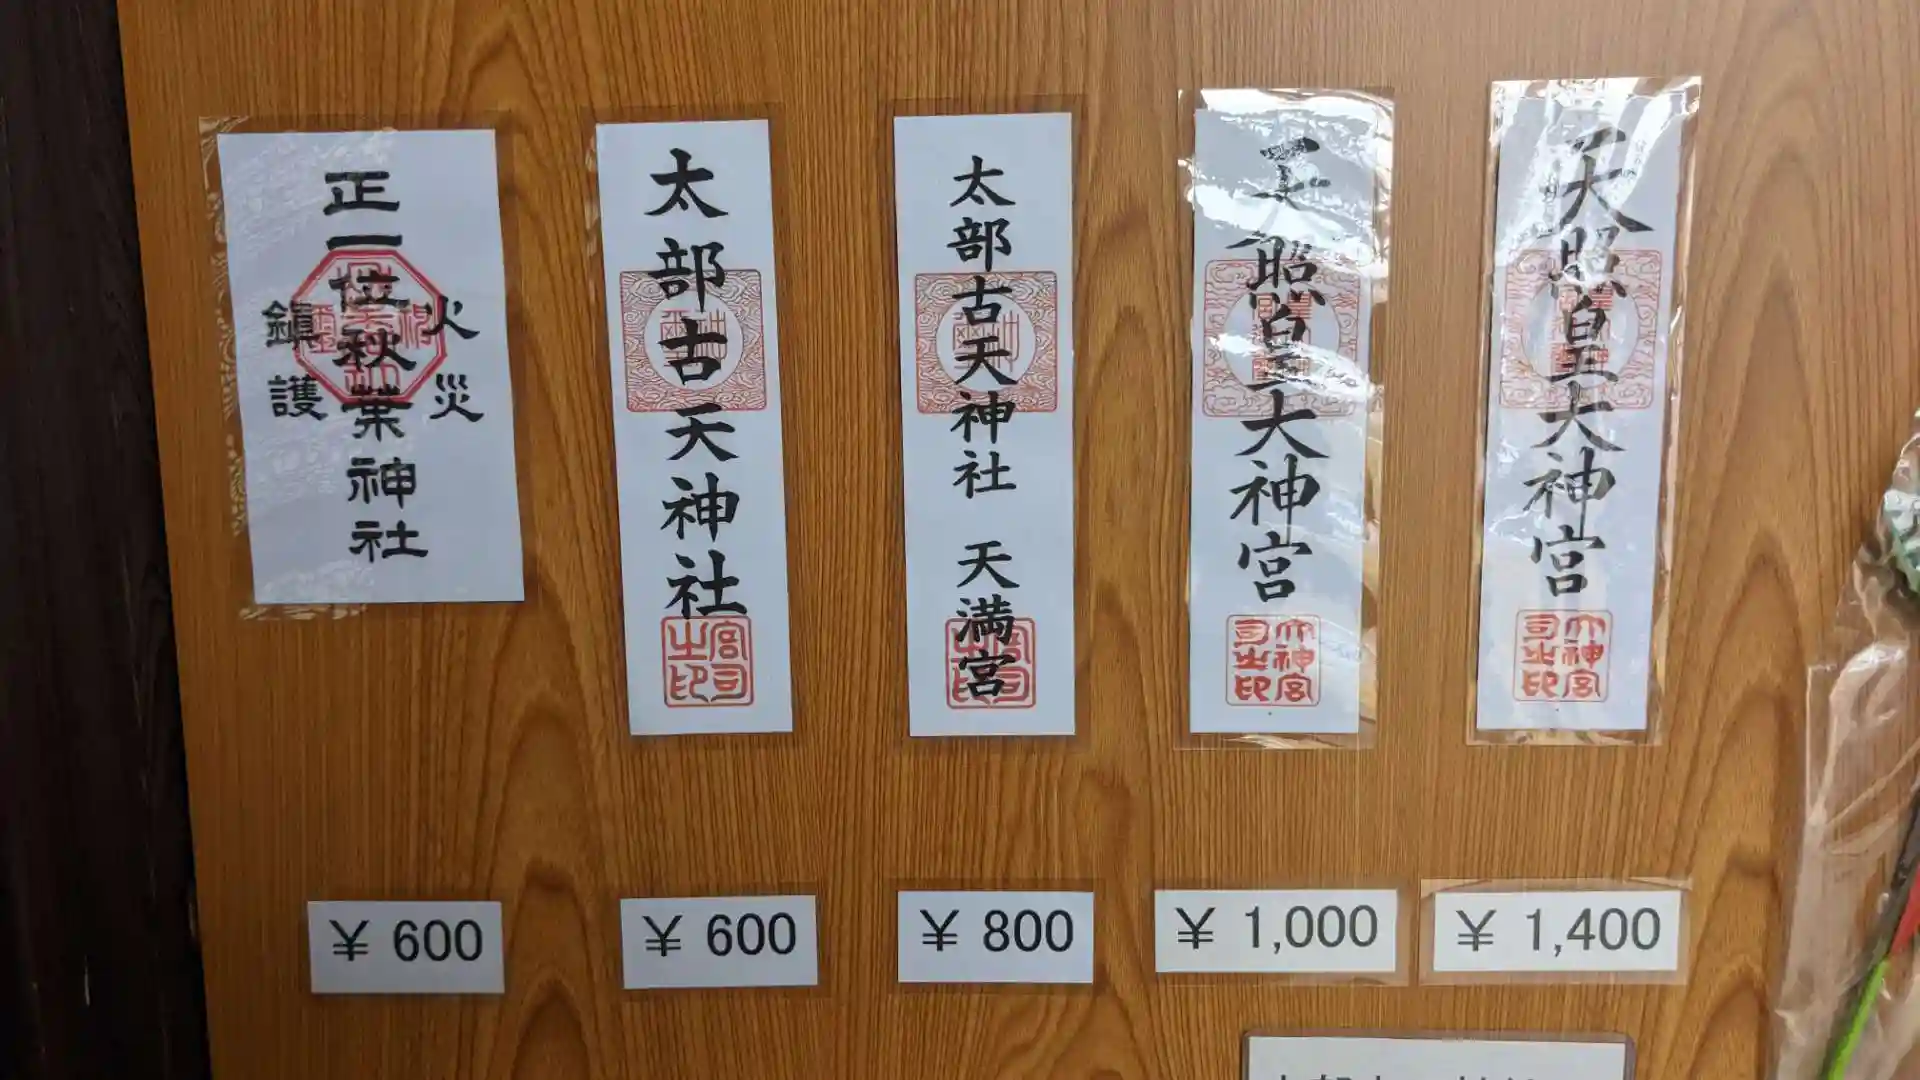 正一位秋葉神社
火災
鎮護
太部古天神社
宮司
之印
太部古天神社 天満宮
宮司
之印
天照皇大神宮
大神宮
司之印
天照皇大神宮
大神宮
司之印
¥ 600
¥ 600
¥ 800
¥ 1,000
¥ 1,400